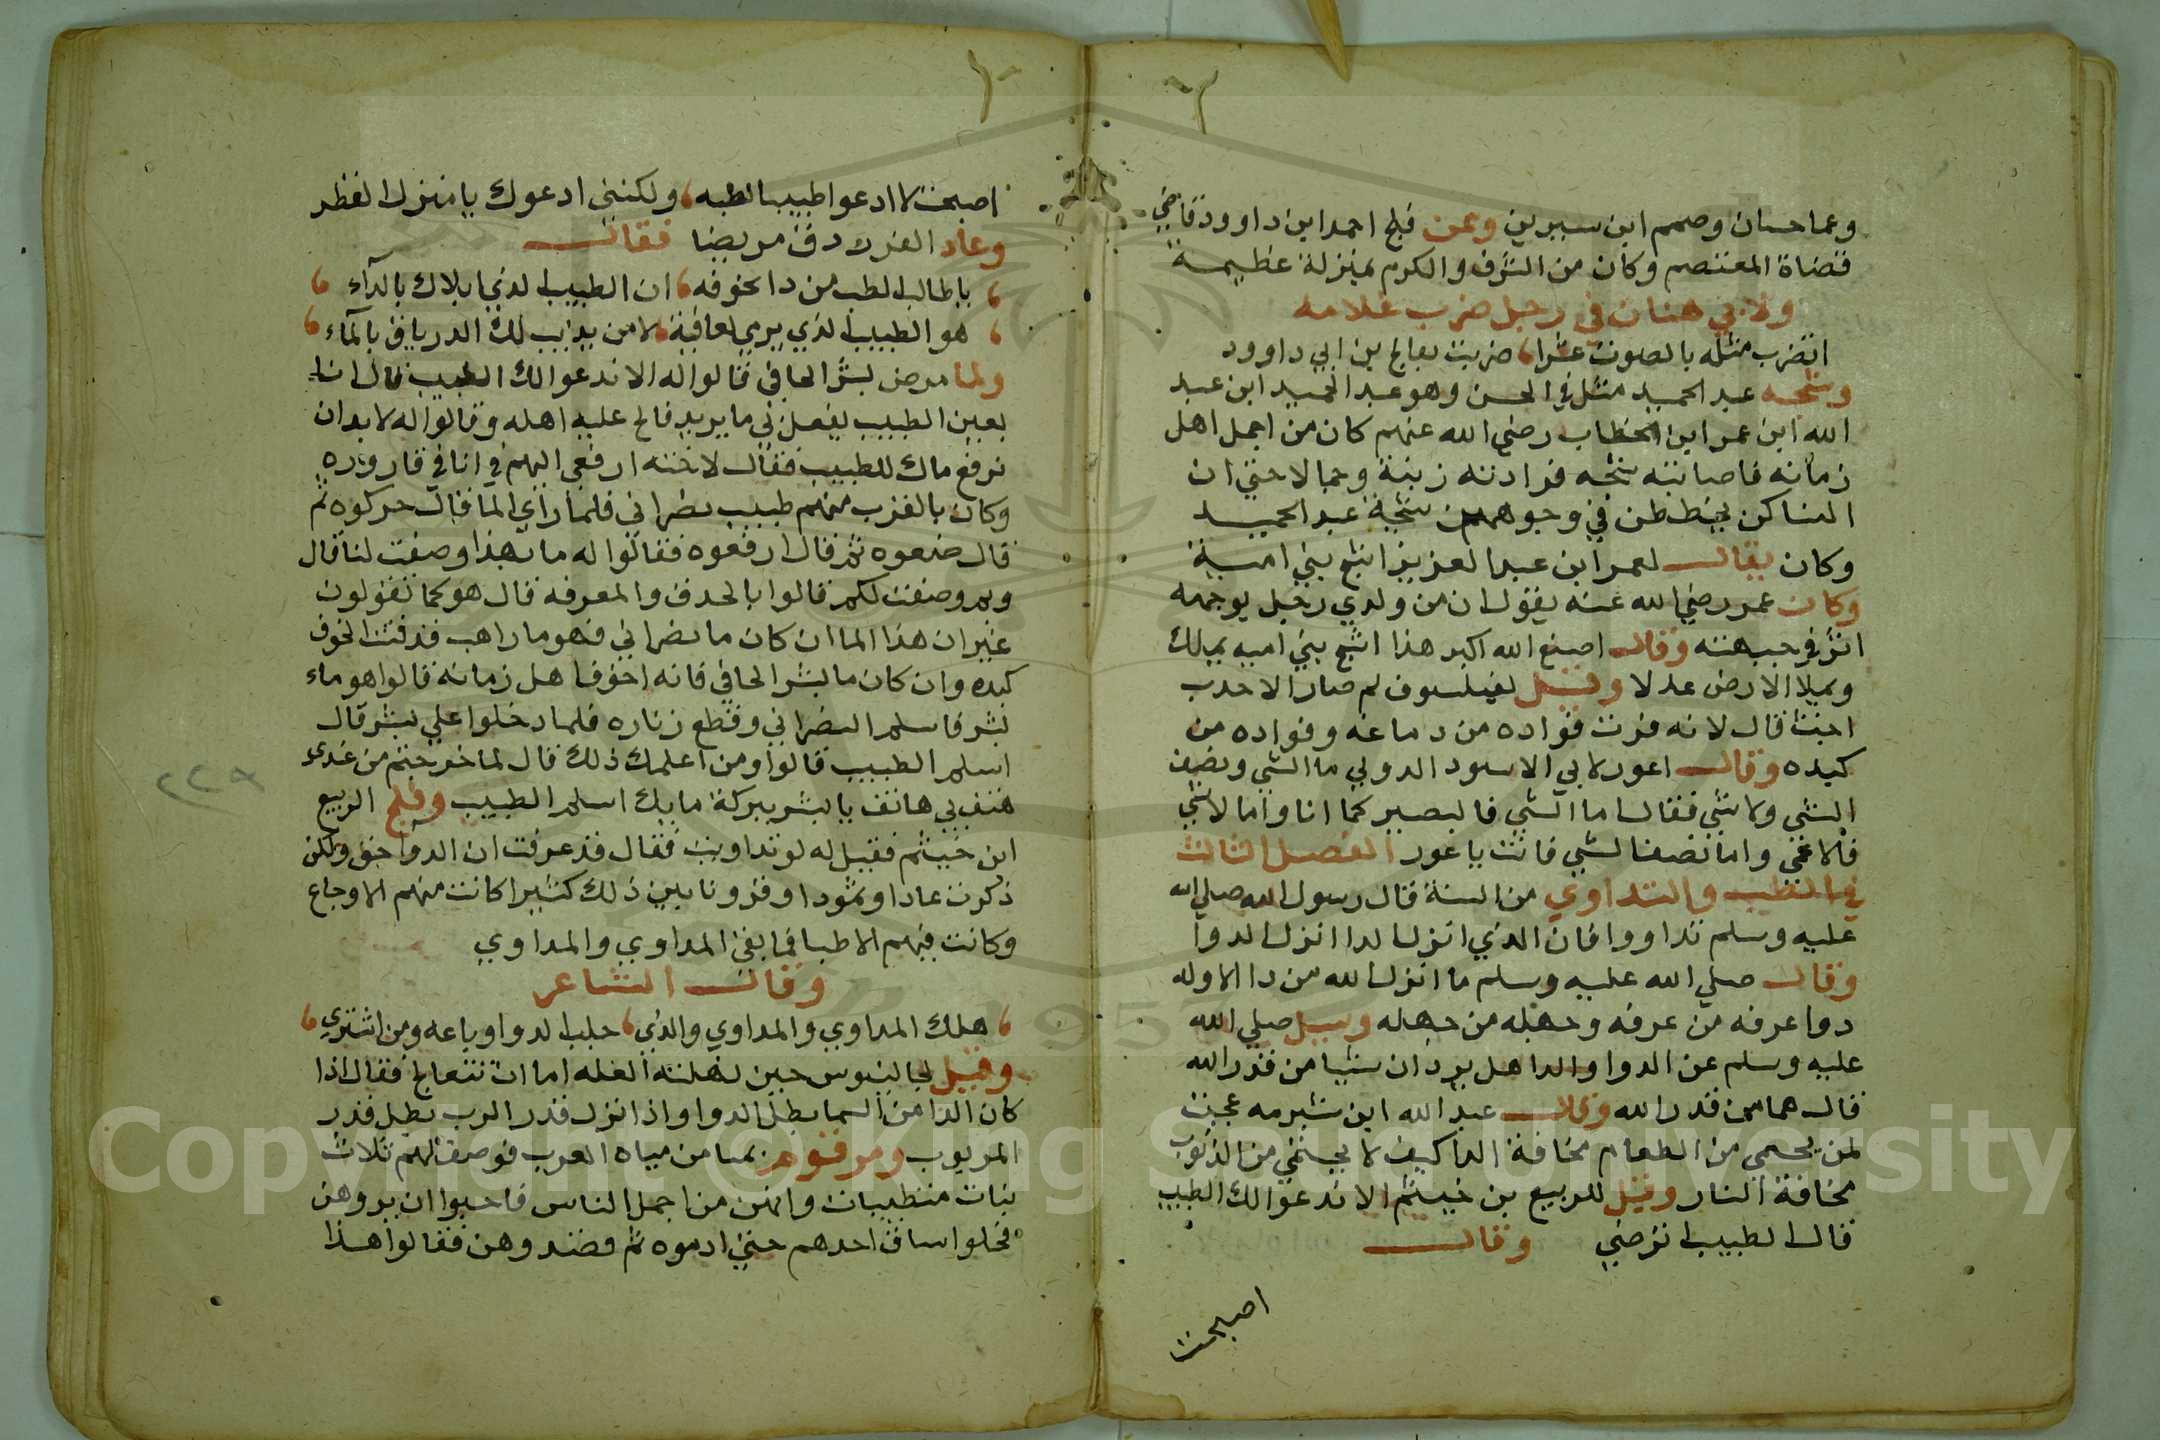 وعما حسان وصمم ابن سيرين وممن فلج احمد ابن داوود قاضي
قضاة المعتصم وكان من الشرف والكرم بمنزلة عظيمة
ولابي هنان في رجل ضرب غلامه
اتضرب مثله بالصوت عشرا ضربت بفالج بن ابي داوود
وشجه عبد الحميد مثل في الحسن وهو عبد الحميد ابن عبد
الله ابن عمر ابن الخطاب رضي الله عنهم كان من اجمل اهل
زمانه فاصابته شجه فزادته زينة وجمالا حتي ان
النسا كن يخططن في وجوههن شجة عبد الحميد
وكان يقال لعمر ابن عبد العزيز اشج بني امية
وكان عمر رضي الله عنه يقول ان من ولدي رجل بوجهه
اثر في جبهته وقال اصبغ الله اكبر هذا اشج بني اميه يملك
ويملا الارض عدلا وقيل لفيلسوف لم صار الاحدب
اخبث قال لانه قربت فواده من دماغه وفواده من
كبده وقال اعور لابي الاسود الدولي ما الشي ونصف
الشي ولا شي فقال اما الشي فالبصير كما انا واما لا شي
فالاعمي واما نصف الشي فانت ياعور الفصل الثالث
في الطب والتداوي من السنة قال رسول الله صلي الله
عليه وسلم تداووا فان الذي انزل الدا انزل الدوا
وقال صلي الله عليه وسلم ما انزل الله من دا الا وله
دوا عرفه من عرفه وجهله من جهله وسيل صلي الله
عليه وسلم عن الدوا والدا هل يردان شيا من قدر الله
قال هما من قدر الله وقال عبد الله ابن شبرمه عجبت
لمن يحمي من الطعام مخافة الدا كيف لا يحتمي من الذنوب
مخافة النار وقيل للربيع بن خيثم الا ندعوا لك الطبيب
قال الطبيب امرضني وقال
اصبحت
اصبحت لا ادعوا طبيبا لطبه ولكنني ادعوك يا منزل القطر
وعاد الفرزدق مريضا فقال
يا طالب الطب من دا تخوفه ان الطبيب الذي ابلاك بالدآء
هو الطبيب الذي يرجي لعافية لا من يذيب لك الدرياق بالمآء
ولما مرض بشر الحافي قالوا له الا ندعوا لك الطبيب قال انا
بعين الطبيب يفعل بي ما يريد فالح عليه اهله وقالوا له لا بد ان
نرفع ماك للطبيب فقال لاخته ارفعي اليهم في انا في قاروره
وكان بالقرب منهم طبيب نصراني فلما راي الما قال حركوه ثم
قال ضعوه ثم قال ارفعوه فقالوا له ما بهذا وصفت لنا قال
وبم وصفت لكم قالوا بالحدق والمعرفه قال هو كما تقولون
غير ان هذا الما ان كان ما نصراني فهو ما راهب قد فتت الخوف
كبده وان كان ما بشر الحافي فانه اخوف اهل زمانه قالوا هو ماء
بشر فاسلم النصراني وقطع زناره فلما دخلوا علي بشر قال
اسلم الطبيب قالوا ومن اعلمك ذلك قال لما خرجتم من عندي
هتف بي هاتف يا بشر ببركة مايك اسلم الطبيب وفلج الربيع
ابن خيثم فقيل له لو تداويت فقال قد عرفت ان الدوا حق ولكن
ذكرت عادا وثمودا وقرونا بين ذلك كثيرا كانت منهم الاوجاع
وكانت فيهم الاطبا فما بقي المداوي والمداوي
وقال الشاعر
هلك المداوي والمداوي والذي جلب الدوا وباعه ومن اشتري
وقيل لجالينوس حين نهكته العله اما ان تتعالج فقال اذا
كان الدا من السما بطل الدوا واذا نزل قدر الرب بطل قدر
المربوب ومر قوم بما من مياه العرب فوصف لهم ثلاث
بنات متطببات وانهن من اجمل الناس فاحبوا ان يروهن
فحلوا ساق احدهم حتي ادموه ثم قصدوهن فقالوا هذا
٢٢٩